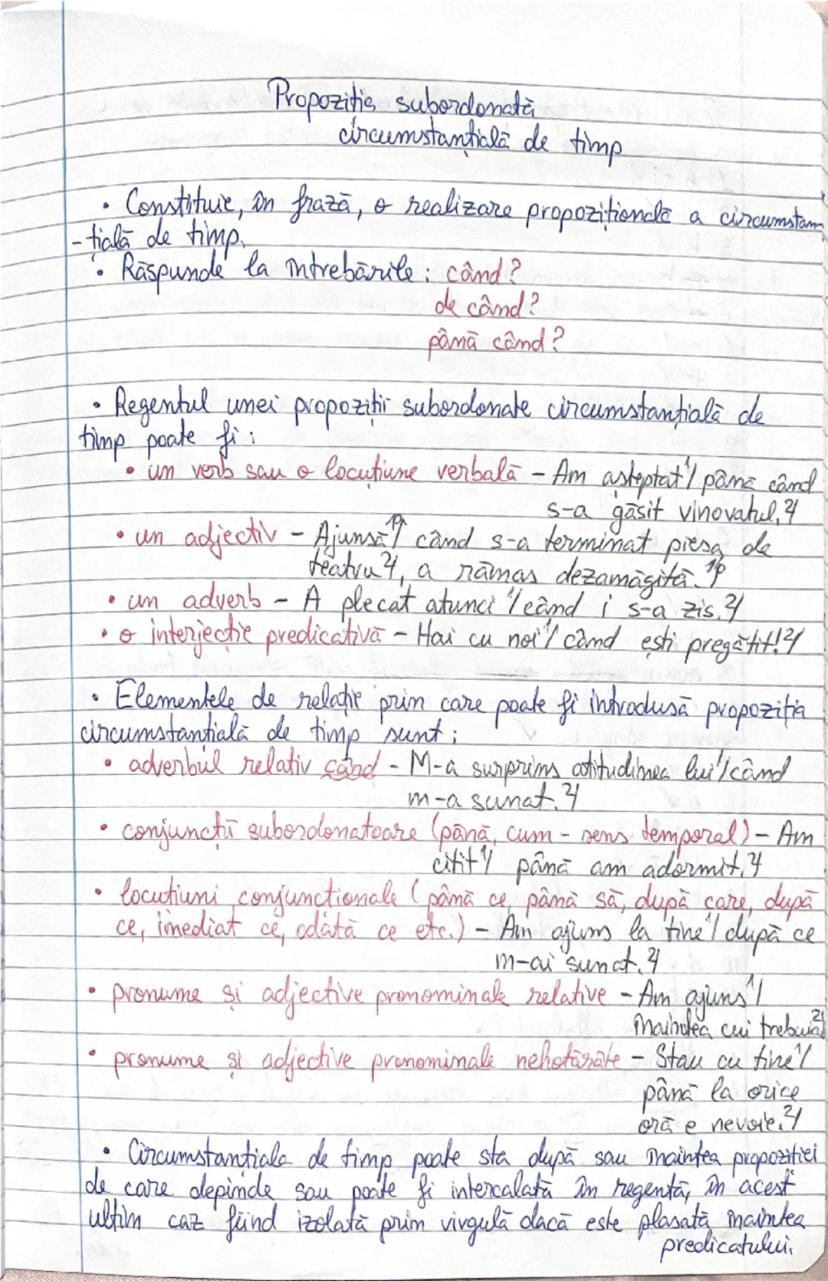 Propoziția subordonată
circumstanțială de timp
• Constituie, în frază, o realizare propozițională a circumstan
-țială de timp.
• Răspunde la întrebările: când?
de când?
până când?
• Regentul unei propoziții subordonate circumstanțială de
timp poate fi:
• un verb sau o locuțiune verbală - Am așteptat¹/ până când
s-a găsit vinovatul.²/
• un adjectiv - Ajunsă¹ᵖ/ când s-a terminat piesa de
teatru²/, a rămas dezamăgită.¹ᵖ/
• un adverb - A plecat atunci¹/ când i s-a zis.²/
• o interjecție predicativă - Hai cu noi¹/ când ești pregătit!²/
• Elementele de relație prin care poate fi introdusă propoziția
circumstanțială de timp sunt:
• adverbul relativ când - M-a surprins atitudinea lui¹/ când
m-a sunat.²/
• conjuncții subordonatoare (până, cum - sens temporal) - Am
citit¹/ până am adormit.²/
• locuțiuni conjuncționale (până ce, până să, după care, după
ce, imediat ce, odată ce etc.) - Am ajuns la tine¹/ după ce
m-ai sunat.²/
• pronume și adjective pronominale relative - Am ajuns¹/
înaintea cui trebuia²/
• pronume și adjective pronominale nehotărâte - Stau cu tine¹/
până la orice
oră e nevoie.²/
• Circumstanțiala de timp poate sta după sau înaintea propoziției
de care depinde sau poate fi intercalată în regentă, în acest
ultim caz fiind izolată prin virgulă dacă este plasată înaintea
predicatului.